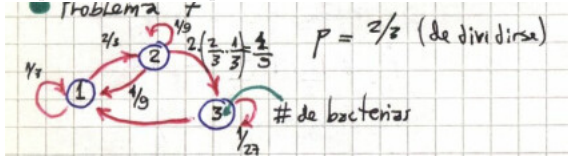 Problema 7
P = 2/3 (de dividirse)
2/3
2
4/9
2·(2/3·1/3)=4/9
1
4/9
3
# de bacterias
1/27